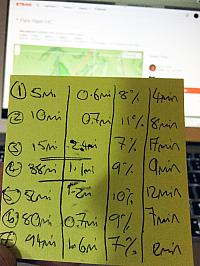 STRAVA
① 5mi 0.6mi 8% 4min
② 10mi 0.7mi 11% 8min
③ 15mi 2.4mi 7% 17min
④ 38mi 1.1mi 9% 9min
⑤ 52mi 1.2mi 10% 12min
⑥ 80mi 0.7mi 9% 7min
⑦ 94mi 1.6mi 7%